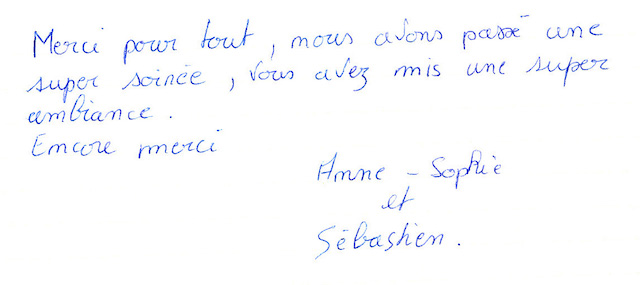 Merci pour tout, nous avons passé une
super soirée, vous avez mis une super
ambiance.
Encore merci
Anne - Sophie
et
Sébastien.